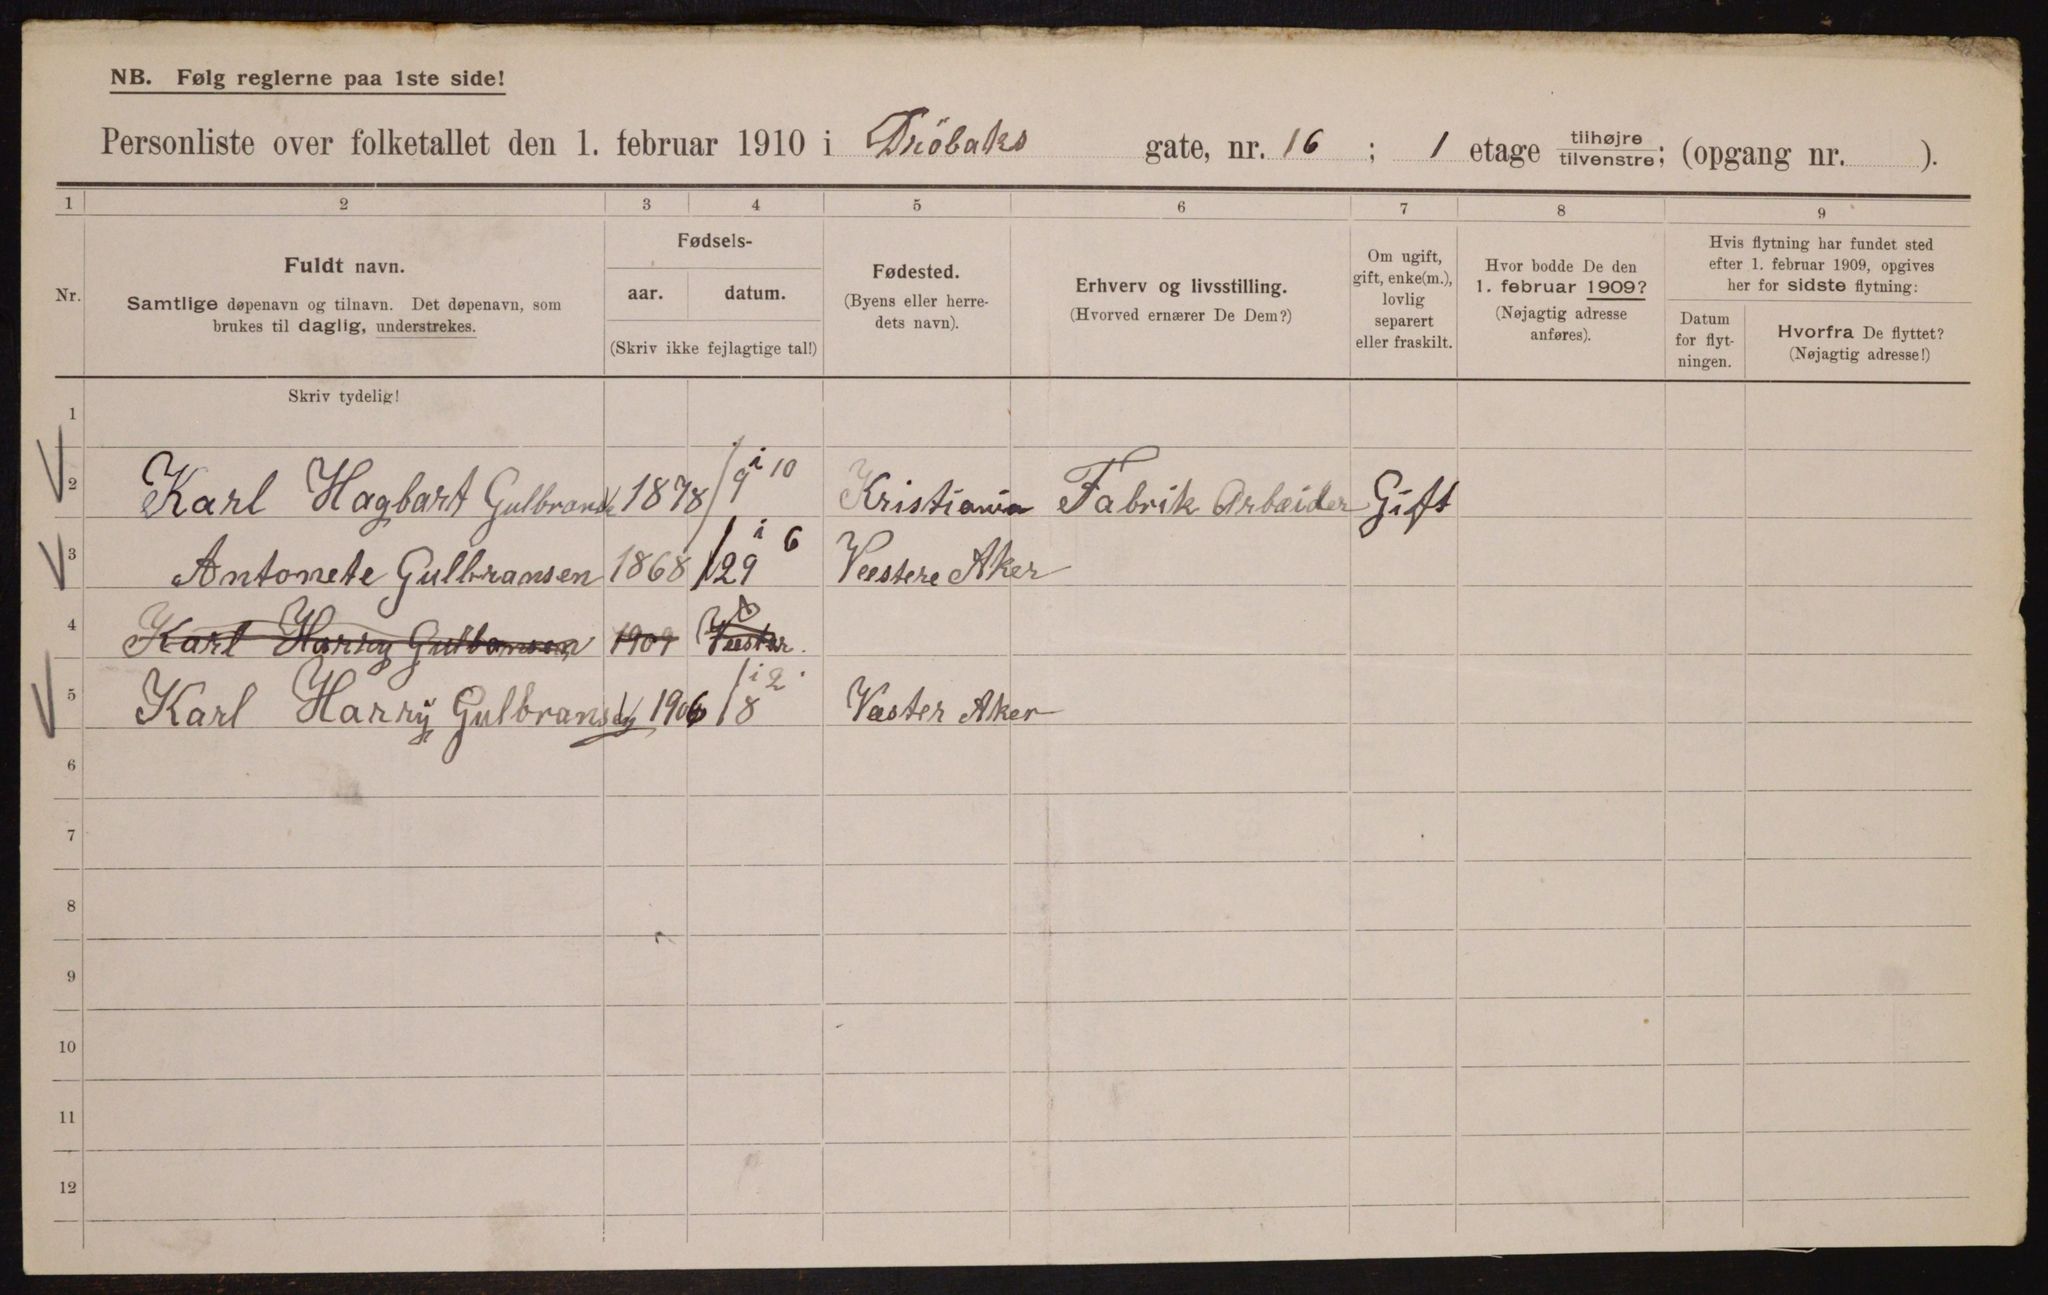 NB. Følg reglerne paa 1ste side!
Personliste over folketallet den 1. februar 1910 i Drøbaks gate, nr. 16 ; 1 etage tilhøjre tilvenstre; (opgang nr. ).
1 2 3 4 5 6 7 8 9
Nr.
Fuldt navn.
Samtlige døpenavn og tilnavn. Det døpenavn, som
brukes til daglig, understrekes.
Fødsels-
aar. datum.
(Skriv ikke fejlagtige tal!)
Fødested.
(Byens eller herre-
dets navn).
Erhverv og livsstilling.
(Hvorved ernærer De Dem?)
Om ugift,
gift, enke(m.),
lovlig
separert
eller fraskilt.
Hvor bodde De den
1. februar 1909?
(Nøjagtig adresse
anføres).
Hvis flytning har fundet sted
efter 1. februar 1909, opgives
her for sidste flytning:
Datum
for flyt-
ningen.
Hvorfra De flyttet?
(Nøjagtig adresse!)
Skriv tydelig!
1
2 Karl Hagbart Gulbrans 1878 9 i 10 Kristiania Fabrik Arbeider Gift
3 Antonete Gulbransen 1868 29 i 6 Veestere Aker
4 Karl Harry Gulbansen 1909 Veester
5 Karl Harry Gulbrans 1906 8 i 2 Vester Aker
6
7
8
9
10
11
12